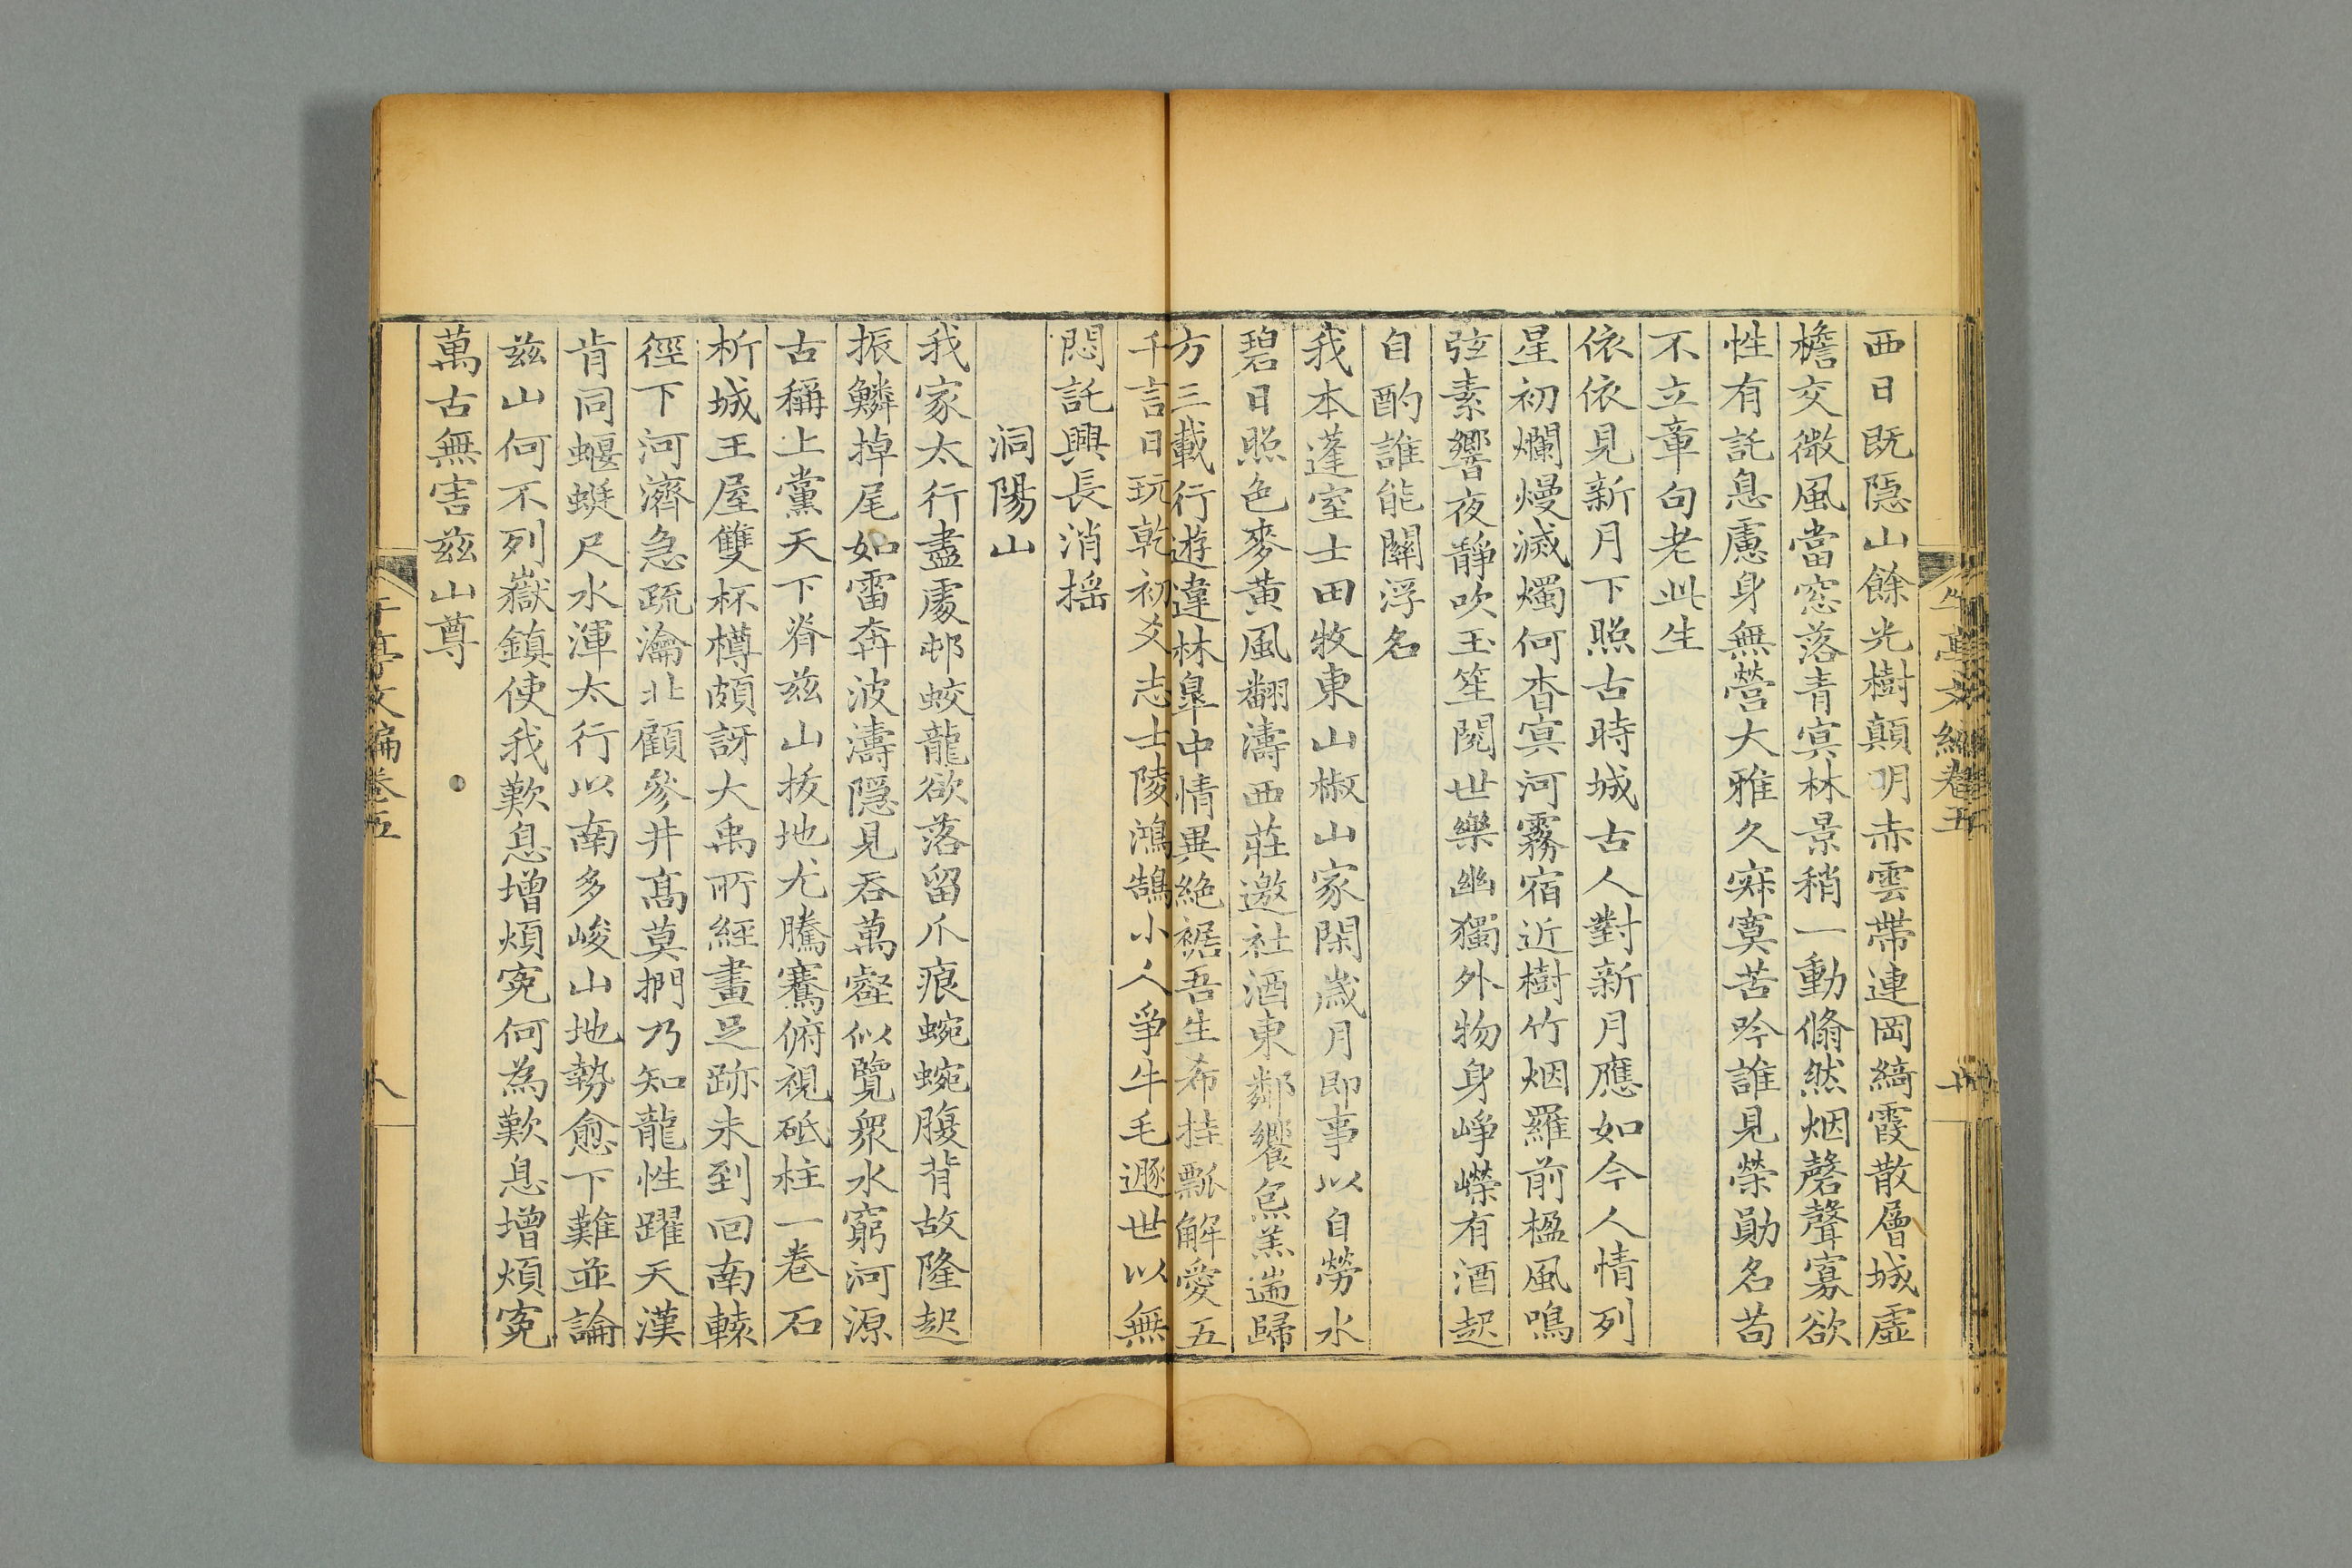 午亭文編卷五
西日既隱山餘光樹顛明赤雲帶連岡綺霞散層城虛
檐交微風當窓落青㝠林景稍一動翛然烟磬聲寡欲
性有託息慮身無營大雅久寂寞苦吟誰見榮勛名苟
不立章句老此生
依依見新月下照古時城古人對新月應如今人情列
星初爛熳滅燭何杳㝠河霧宿近樹竹烟羅前楹風鳴
弦素響夜靜吹玉笙閱世樂幽獨外物身崢嶸有酒起
自酌誰能關浮名
我本蓬室士田牧東山椒山家閑歲月即事以自勞水
碧日照色麥黃風翻濤西莊邀社酒東鄰饗炰羔遄歸
方三載行遊違林臯中情異絶裾吾生希挂瓢解愛五
千言日玩乾初爻志士陵鴻鵠小人爭牛毛遯世以無
悶託興長消搖
洞陽山
我家太行盡處邨蛟龍欲落留爪痕蜿蜿腹背故隆起
振鱗掉尾如雷奔波濤隱見吞萬壑似覽衆水窮河源
古稱上黨天下脊兹山拔地尤騰騫俯視砥柱一卷石
析城王屋雙杯樽頗訝大禹所經畫足跡未到回南轅
徑下河濟急疏瀹北顧參井髙莫捫乃知龍性躍天漢
肯同蝘蜓尺水渾太行以南多峻山地勢愈下難並論
兹山何不列嶽鎮使我歎息增煩寃何為歎息增煩寃
萬古無害兹山尊
午亭文編卷五
八